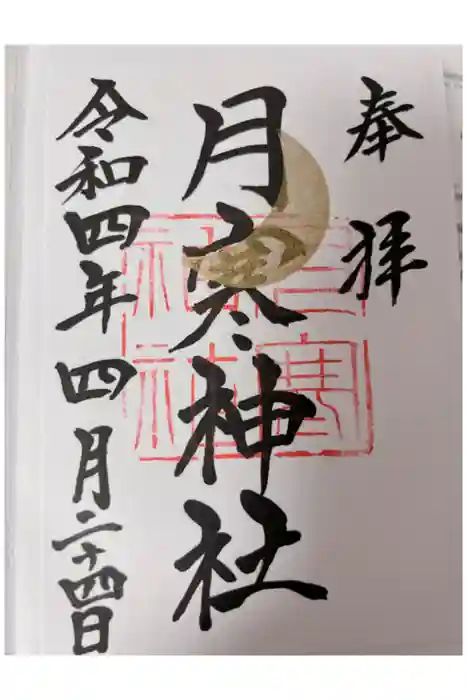 奉拝
月寒神社
令和四年四月二十四日